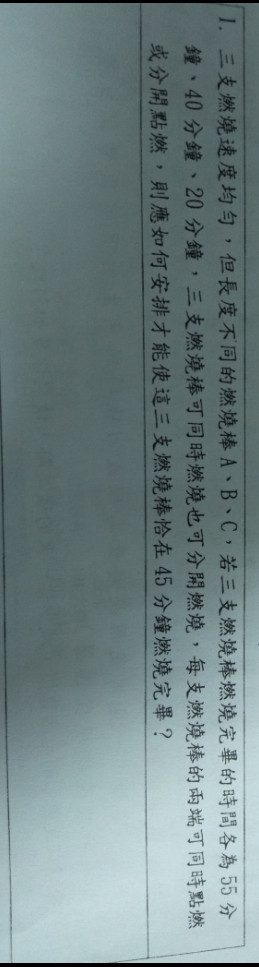 1. 三支燃燒速度均勻，但長度不同的燃燒棒 A、B、C，若三支燃燒棒燃燒完畢的時間各為 55 分
鐘、40 分鐘、20 分鐘，三支燃燒棒可同時燃燒也可分開燃燒，每支燃燒棒的兩端可同時點燃
或分開點燃，則應如何安排才能使這三支燃燒棒恰在 45 分鐘燃燒完畢？